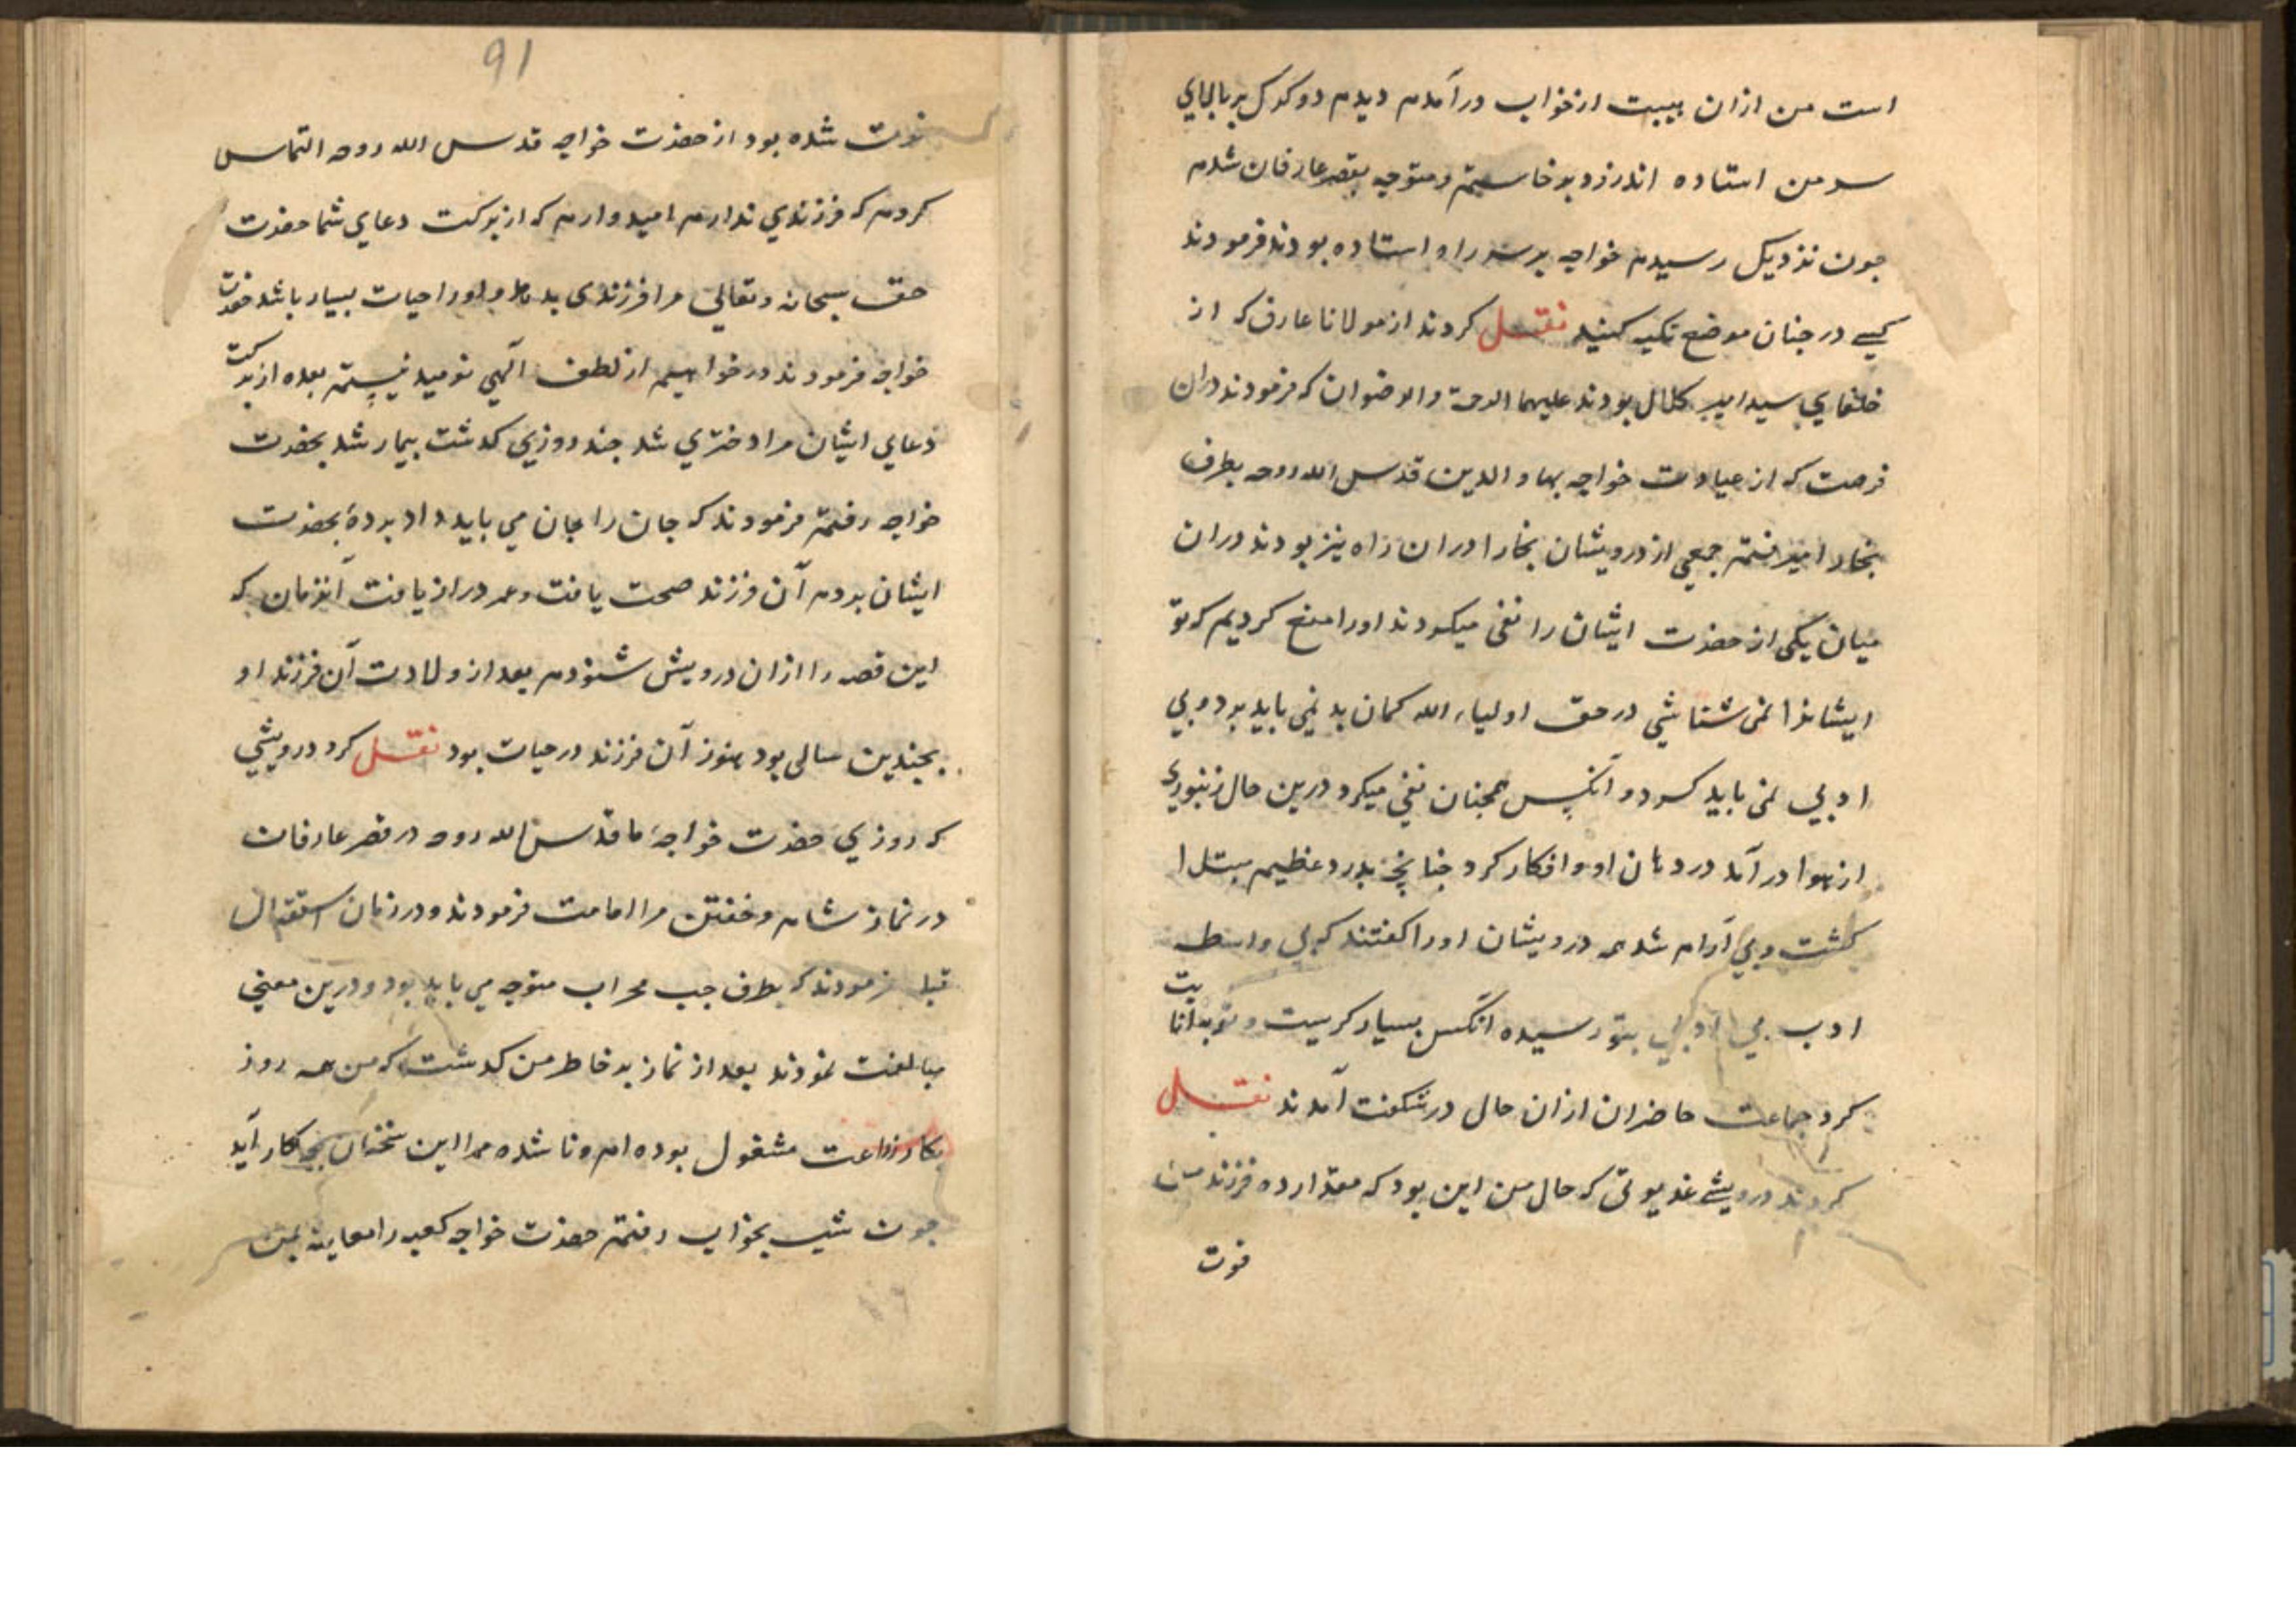 است من ازان هیبت از خواب درآمدم دیدم دو کرک بر بالای
سر من استاده اند زود برخاستم و متوجه بقصر عارفان شدم
جون نزدیک رسیدم خواجه بر سر راه استاده بودند فرمودند
کسی در جنان موضع تکیه کنید نقل کردند از مولانا عارف که از
خلفای سید امیر کلال بودند علیهما الرحمة والرضوان که فرمودند دران
فرصت که از عیادت خواجه بهاء الدین قدس الله روحه بطرف
بخارا میرفتم جمعی از درویشان بخارا دران راه نیز بودند دران
میان یکی از حضرت ایشان را نفی میکردند اورا منع کردیم که تو
ایشانرا نمی شناشی در حق اولیاء الله کمان بد نمی باید برد و بی
ادبی نمی باید کرد و آنکس همجنان نفی میکرد درین حال زنبوری
از هوا درآمد در دهان او و افکار کرد جنانچه بدرد عظیم مبتلا
کشت و بی آرام شد همه درویشان اورا کفتند که بی واسطه
ادب بی ادبی بتو رسیده آنکس بسیار کریست و توبه انابت
کرد جماعت حاضران ازان حال در شکفت آمدند نقل
کردند درویشی غدیوتی که حال من این بود که مقدار ده فرزند من
فوت
91
فوت شده بود از حضرت خواجه قدس الله روحه التماس
کردم که فرزندی ندارم امیدوارم که از برکت دعای شما حضرت
حق سبحانه وتعالی مرا فرزندی بدهد و اورا حیات بسیار باشد حضرت
خواجه فرمودند درخواهیم از لطف الهی نومید نیستم بعده از برکت
دعای ایشان مرا دختری شد جند روزی کذشت بیمار شد بحضرت
خواجه رفتم فرمودند که جان را بجان می باید داد برده بحضرت
ایشان بردم آن فرزند صحت یافت و عمر دراز یافت آنزمان که
این قصه را ازان درویش شنودم بعد از ولادت آن فرزند او
بجندین سالی بود هنوز آن فرزند در حیات بود نقل کرد درویشی
که روزی حضرت خواجهٔ ما قدس الله روحه در قصر عارفان
در نماز شام و خفتن مرا امامت فرمودند و در زمان استقبال
قبله فرمودند که بطرف جب محراب متوجه می باید بود و درین معنی
مبالغت نمودند بعد از نماز بر خاطر من کذشت که من همه روز
بکار زراعت مشغول بوده ام و نا شده مرا این سخنان بچه کار آید
جون شب بخواب رفتم حضرت خواجه کعبه را معاینه بمن